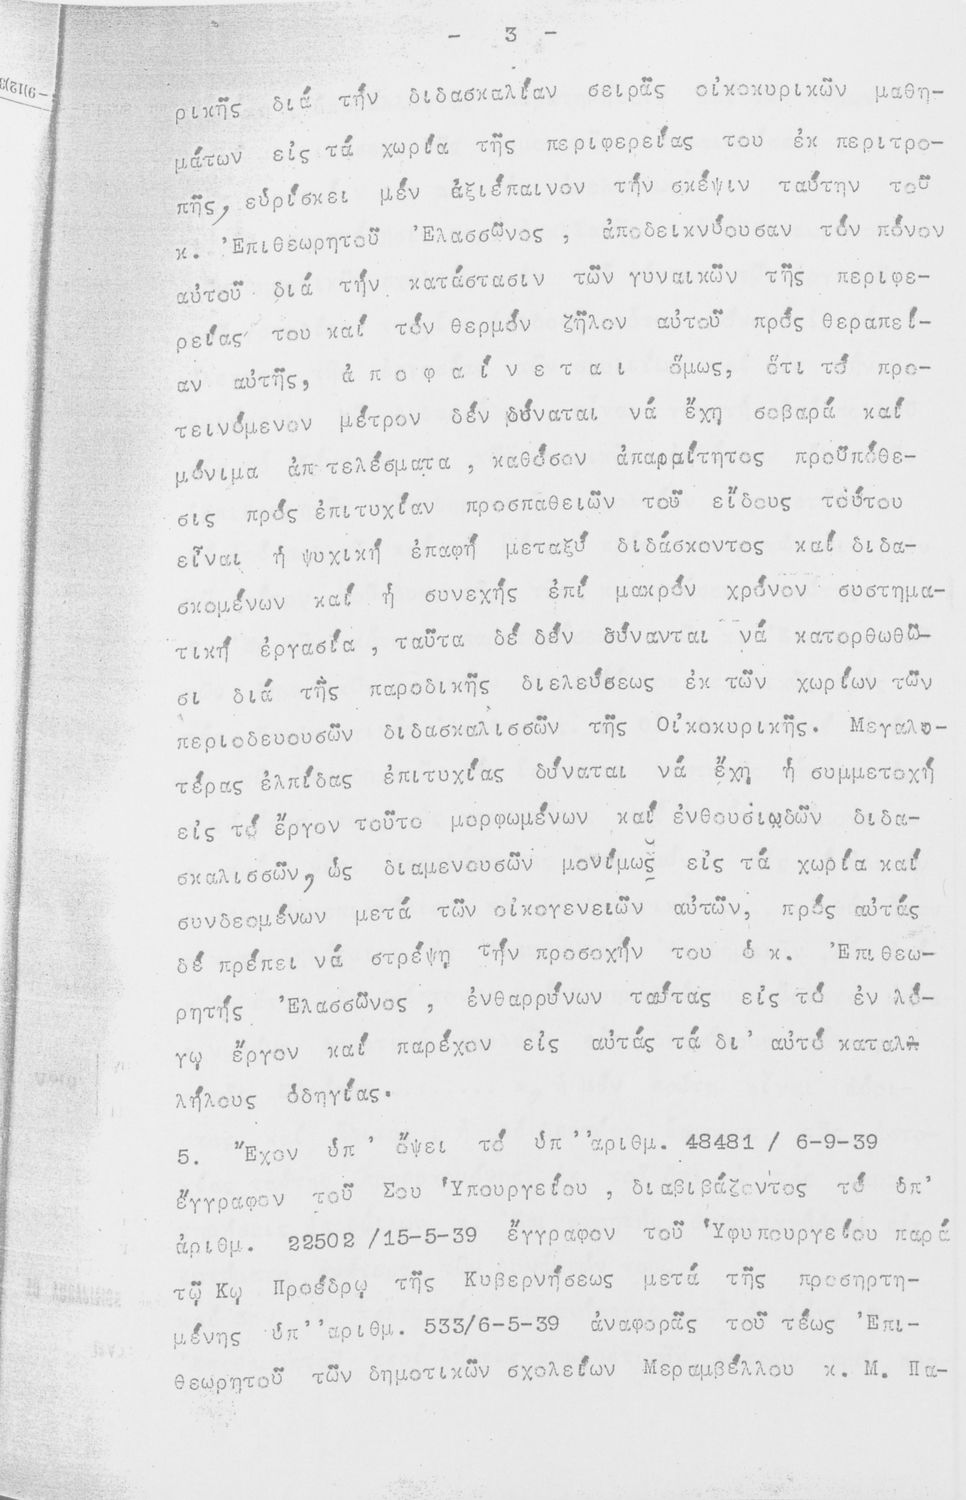 - 3 -
ρικῆς διά τήν διδασκαλίαν σειρᾶς οἰκοκυρικῶν μαθη-
μάτων εἰς τά χωρία τῆς περιφερείας του ἐκ περιτρο-
πῆς, εὑρίσκει μέν ἀξιέπαινον τήν σκέψιν ταύτην τοῦ
κ. Ἐπιθεωρητοῦ Ἐλασσῶνος , ἀποδεικνύουσαν τόν πόνον
αὐτοῦ διά τήν κατάστασιν τῶν γυναικῶν τῆς περιφε-
ρείας του καί τόν θερμόν ζῆλον αὐτοῦ πρός θεραπεί-
αν αὐτῆς, ἀ π ο φ α ί ν ε τ α ι ὅμως, ὅτι τό προ-
τεινόμενον μέτρον δέν δύναται νά ἔχη σοβαρά καί
μόνιμα ἀπ τελέσματα , καθόσον ἀπαραίτητος προϋπόθε-
σις πρός ἐπιτυχίαν προσπαθειῶν τοῦ εἴδους τούτου
εἶναι ἡ ψυχική ἐπαφή μεταξύ διδάσκοντος καί διδα-
σκομένων καί ἡ συνεχής ἐπί μακρόν χρόνον συστημα-
τική ἐργασία , ταῦτα δέ δέν δύνανται νά κατορθωθῶ-
σι διά τῆς παροδικῆς διελεύσεως ἐκ τῶν χωρίων τῶν
περιοδευουσῶν διδασκαλισσῶν τῆς Οἰκοκυρικῆς. Μεγαλυ-
τέρας ἐλπίδας ἐπιτυχίας δύναται νά ἔχη ἡ συμμετοχή
εἰς τό ἔργον τοῦτο μορφωμένων καί ἐνθουσιωδῶν διδα-
σκαλισσῶν, ὡς διαμενουσῶν μονίμως εἰς τά χωρία καί
συνδεομένων μετά τῶν οἰκογενειῶν αὐτῶν, πρός αὐτάς
δέ πρέπει νά στρέψῃ τήν προσοχήν του ὁ κ. Ἐπιθεω-
ρητής Ἐλασσῶνος , ἐνθαρρύνων ταύτας εἰς τό ἐν λό-
γῳ ἔργον καί παρέχον εἰς αὐτάς τά δι' αὐτό καταλ-
λήλους ὁδηγίας.
5. Ἔχον ὑπ' ὄψει τό ὑπ''ἀριθμ. 48481 / 6-9-39
ἔγγραφον τοῦ Σου Ὑπουργείου , διαβιβάζοντος τό ὑπ'
ἀριθμ. 22502 /15-5-39 ἔγγραφον τοῦ Ὑφυπουργείου παρά
τῷ Κῳ Προέδρῳ τῆς Κυβερνήσεως μετά τῆς προσηρτη-
μένης ὑπ''αριθμ. 533/6-5-39 ἀναφορᾶς τοῦ τέως Ἐπι-
θεωρητοῦ τῶν δημοτικῶν σχολείων Μεραμβέλλου κ. Μ. Πα-